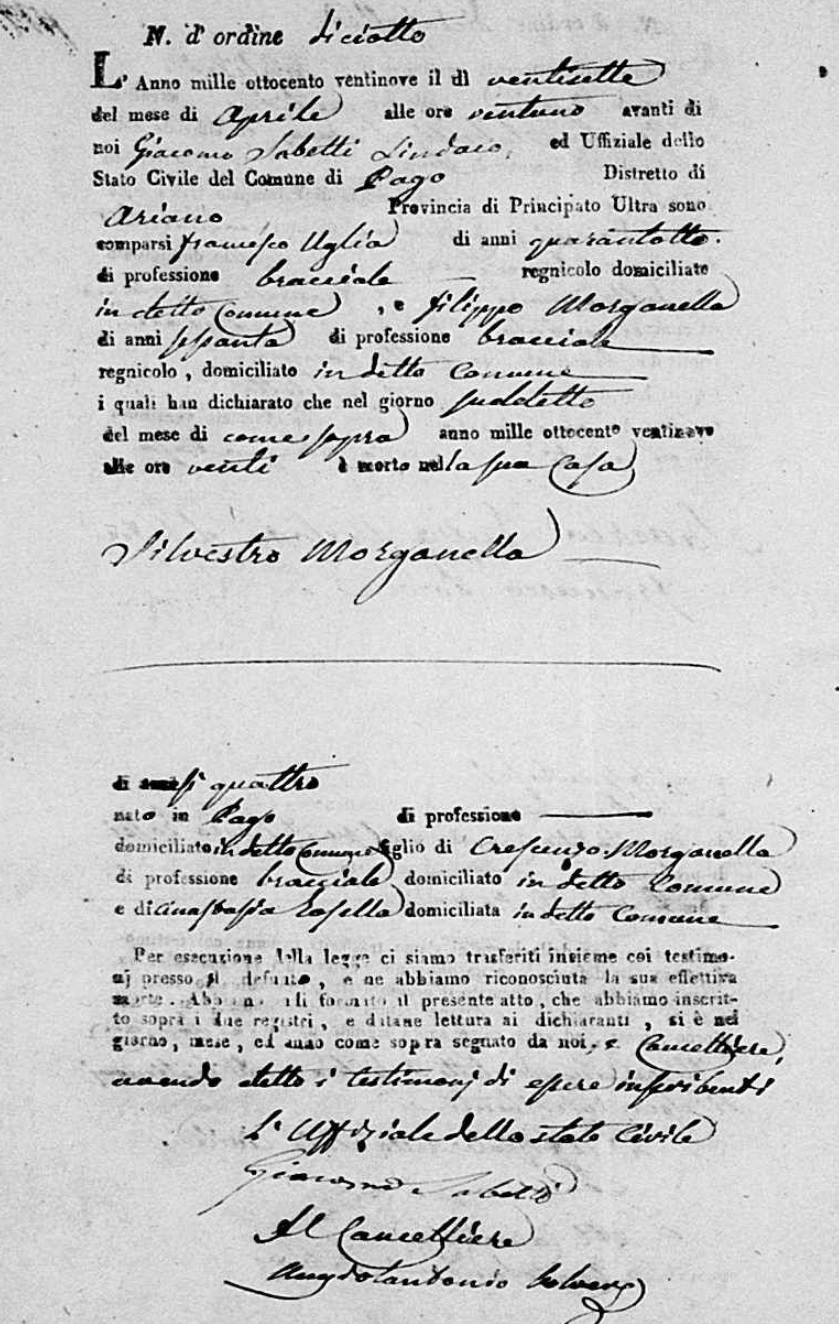 N. d'ordine diciotto
L'Anno mille ottocento ventinove il dì ventisette
del mese di Aprile alle ore ventuno avanti di
noi Giacomo Sabetti Sindaco, ed Uffiziale dello
Stato Civile del Comune di Pago Distretto di
Ariano Provincia di Principato Ultra sono
comparsi Francesco Uglia di anni quarantotto.
di professione bracciale regnicolo domiciliato
in detto Comune, e Filippo Morganella
di anni sessanta di professione bracciale
regnicolo, domiciliato in detto Comune
i quali han dichiarato che nel giorno suddetto
del mese di come sopra anno mille ottocento ventinove
alle ore venti è morto nella sua Casa
Silvestro Morganella
di mesi quattro
nato in Pago di professione
domiciliato in detto Comune figlio di Crescenzo Morganella
di professione bracciale domiciliato in detto Comune
e di Anastasia domiciliata in detto Comune
Per esecuzione della legge ci siamo trasferiti insieme coi testimo-
nj presso il defunto, e ne abbiamo riconosciuta la sua effettiva
morte. Abbiamo indi formato il presente atto, che abbiamo inscrit-
to sopra i due registri, e datane lettura ai dichiaranti, si è nel
giorno, mese, ed anno come sopra segnato da noi, e Cancelliere,
avendo detto i testimonj di essere inscribenti
L'Uffiziale dello stato Civile
Giacomo Sabetti
Il Cancelliere